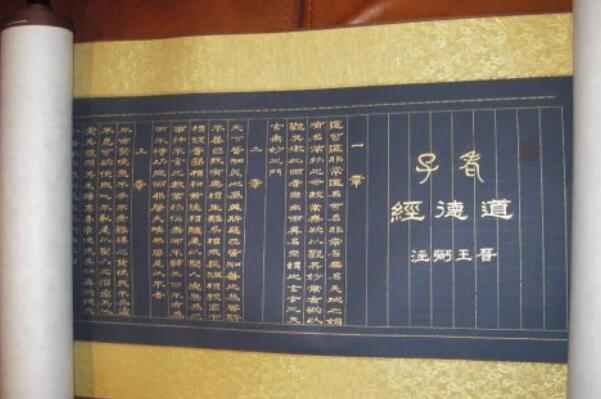 老子
道德經
晉王弼注
一章
道可道非常道名可名非常名無名天地之始
有名萬物之母故常無欲以觀其妙常有欲以
觀其徼此兩者同出而異名同謂之玄玄之又
玄衆妙之門
二章
天下皆知美之為美斯惡已皆知善之為善斯
不善已故有無相生難易相成長短相較高下
相傾音聲相和前後相隨是以聖人處無為之
事行不言之教萬物作焉而不辭生而不有為
而不恃功成而弗居夫唯弗居是以不去
三章
不尚賢使民不爭不貴難得之貨使民不為盜
不見可欲使民心不亂是以聖人之治虛其心
實其腹弱其志強其骨常使民無知無欲使夫